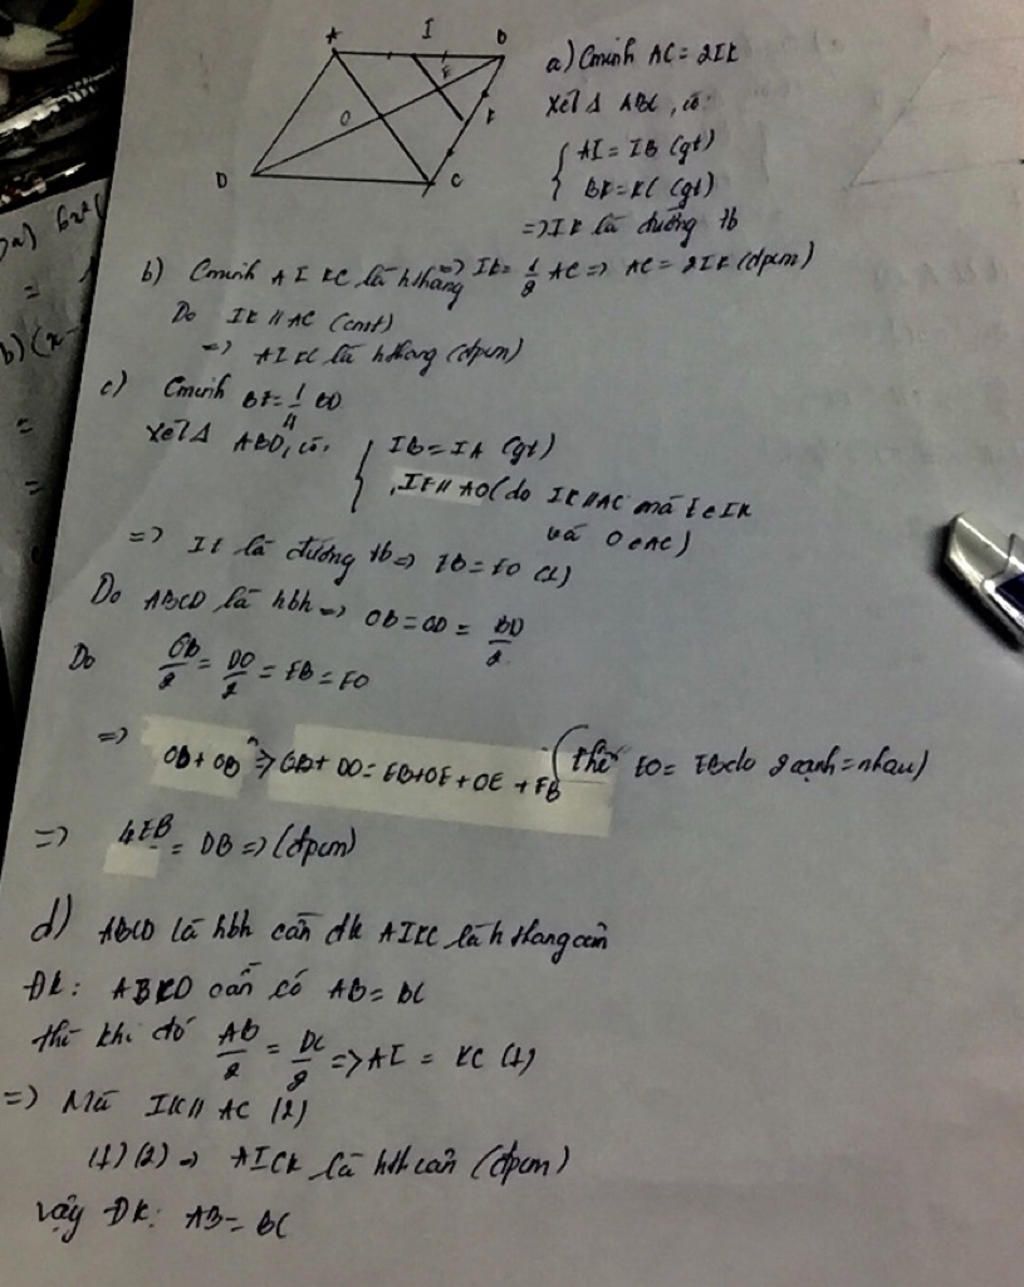 A I B
E
O K
D C
a) Cminh AC = 2IK
Xét Δ ABC, có:
AI = IB (gt)
BK = KC (gt)
=> IK là đường tb
=> IK = 1/2 AC => AC = 2IK (đpcm)
b) Cminh AIKC là hthang
Do IK // AC (cmt)
=> AIKC là hthang (đpcm)
c) Cminh BE = 1/4 BD
Xét Δ ABO, có:
IB = IA (gt)
IE // AO (do IK // AC mà E ∈ IK
và O ∈ AC)
=> IE là đường tb => EB = EO (1)
Do ABCD là hbh => OB = OD = BD/2
Do OB/2 = DO/2 = EB = EO
=> OB + OD => OB + DO = EB + OE + OE + EB (thì EO = EB do 2 cạnh = nhau)
=> 4EB = DB => (đpcm)
d) ABCD là hbh cần đk AIKC là hthang cân
ĐK: ABCD cần có AB = BC
thì khi đó AB/2 = BC/2 => AI = KC (1)
=> Mà IK // AC (2)
(1)(2) => AICK là hth cân (đpcm)
Vậy ĐK: AB = BC